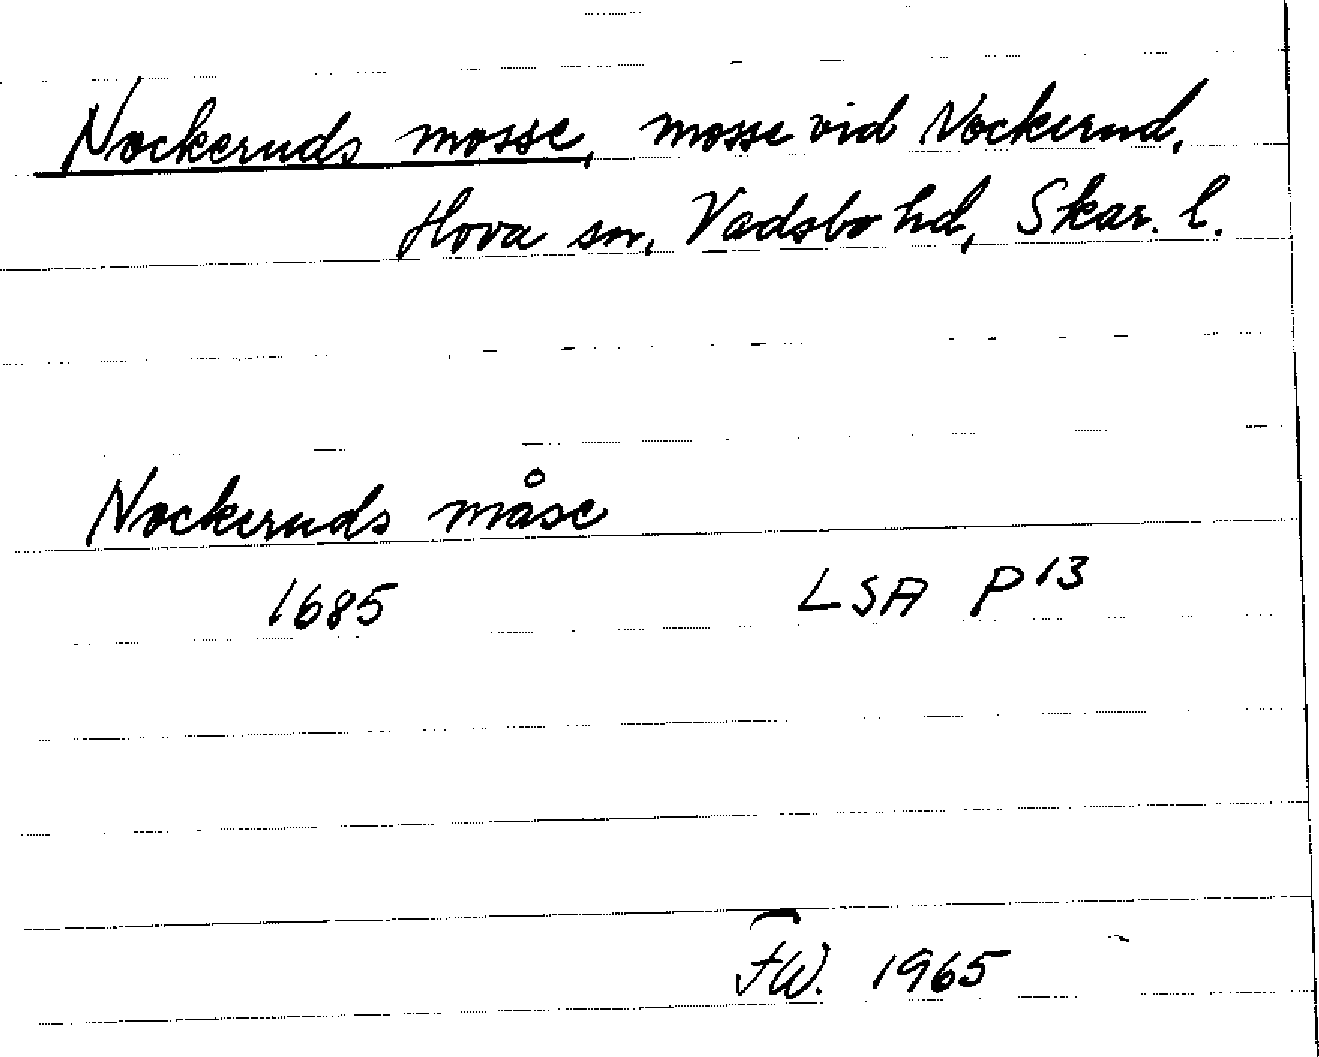 Nockeruds mosse, mosse vid Nockerud,
Hova sn, Vadsbo hd, Skar. l.
Nockeruds måse
1685 LSA P 13
FW. 1965